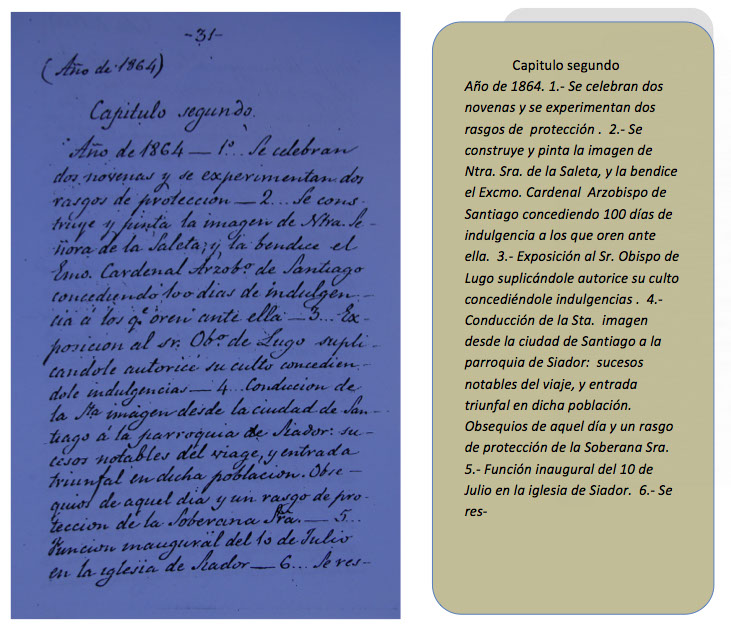 -31-
(Año de 1864)
Capitulo segundo.
Año de 1864 — 1º... Se celebran
dos novenas y se experimentan dos
rasgos de proteccion — 2... Se cons-
truye y pinta la imagen de Ntra. Se-
ñora de la Saleta; y la bendice el
Emo. Cardenal Arzobº. de Santiago
concediendo 100 dias de indulgen-
cia á los qº. oren ante ella — 3... Ex-
posicion al sr. Obº. de Lugo supli-
candole autorice su culto concedien-
dole indulgencias — 4... Conduccion de
la Sta imagen desde la ciudad de San-
tiago á la parroquia de Siador: su-
cesos notables del viage, y entrada
triunfal en dicha poblacion. Obse-
quios de aquel dia y un rasgo de pro-
teccion de la Soberana Sra. — 5...
Funcion inaugural del 10 de Julio
en la iglesia de Siador — 6... Se res-
Capitulo segundo
Año de 1864. 1.- Se celebran dos
novenas y se experimentan dos
rasgos de protección . 2.- Se
construye y pinta la imagen de
Ntra. Sra. de la Saleta, y la bendice
el Excmo. Cardenal Arzobispo de
Santiago concediendo 100 días de
indulgencia a los que oren ante
ella. 3.- Exposición al Sr. Obispo de
Lugo suplicándole autorice su culto
concediéndole indulgencias . 4.-
Conducción de la Sta. imagen
desde la ciudad de Santiago a la
parroquia de Siador: sucesos
notables del viaje, y entrada
triunfal en dicha población.
Obsequios de aquel día y un rasgo
de protección de la Soberana Sra.
5.- Función inaugural del 10 de
Julio en la iglesia de Siador. 6.- Se
res-